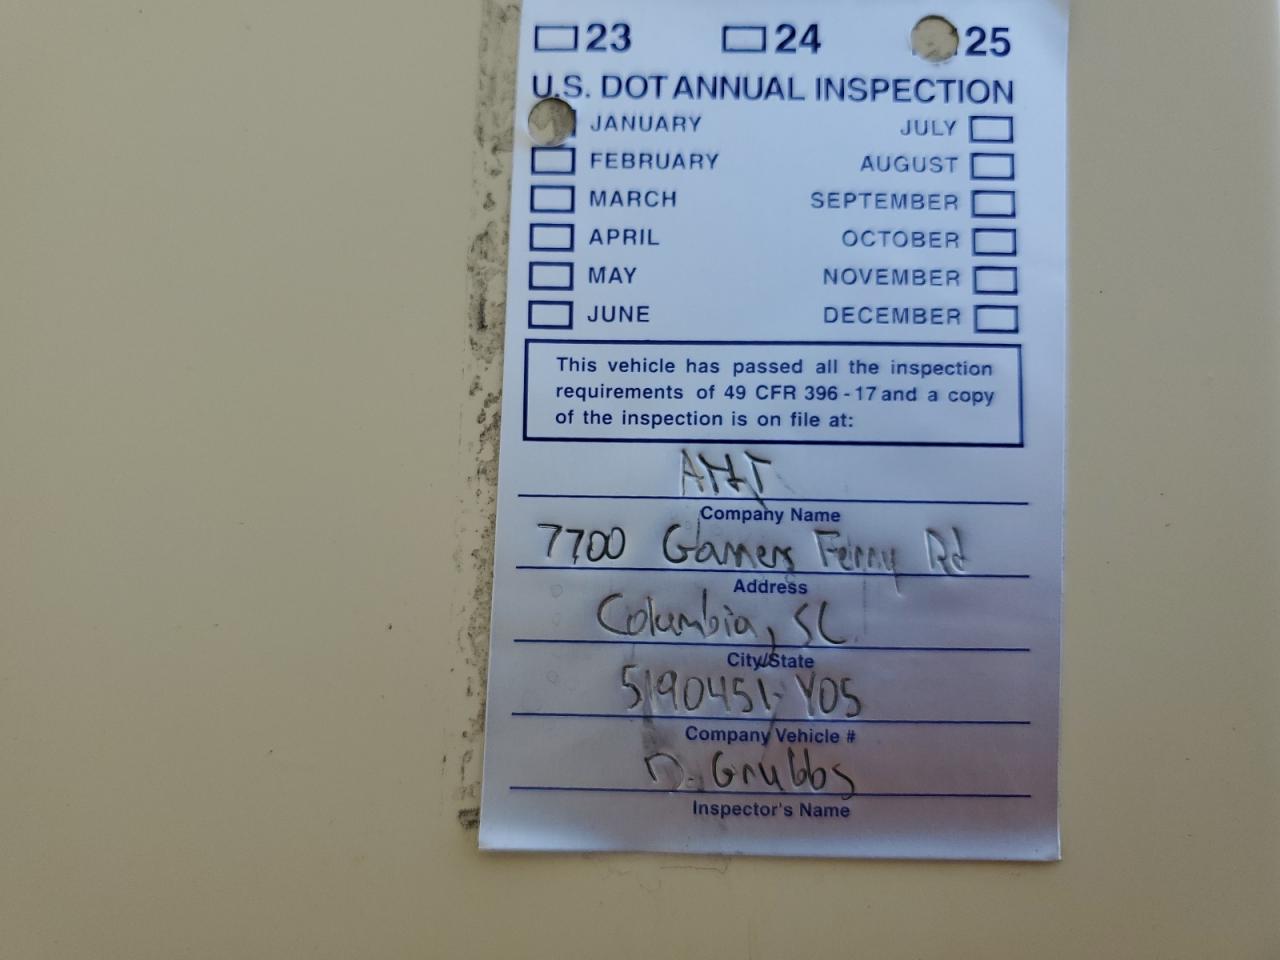 23 24 25
U.S. DOT ANNUAL INSPECTION
JANUARY JULY
FEBRUARY AUGUST
MARCH SEPTEMBER
APRIL OCTOBER
MAY NOVEMBER
JUNE DECEMBER
This vehicle has passed all the inspection
requirements of 49 CFR 396-17 and a copy
of the inspection is on file at:
Company Name
7700 Garners Ferry Rd
Address
Columbia, SC
City/State
5190451-Y05
Company Vehicle #
D. Grubbs
Inspector's Name